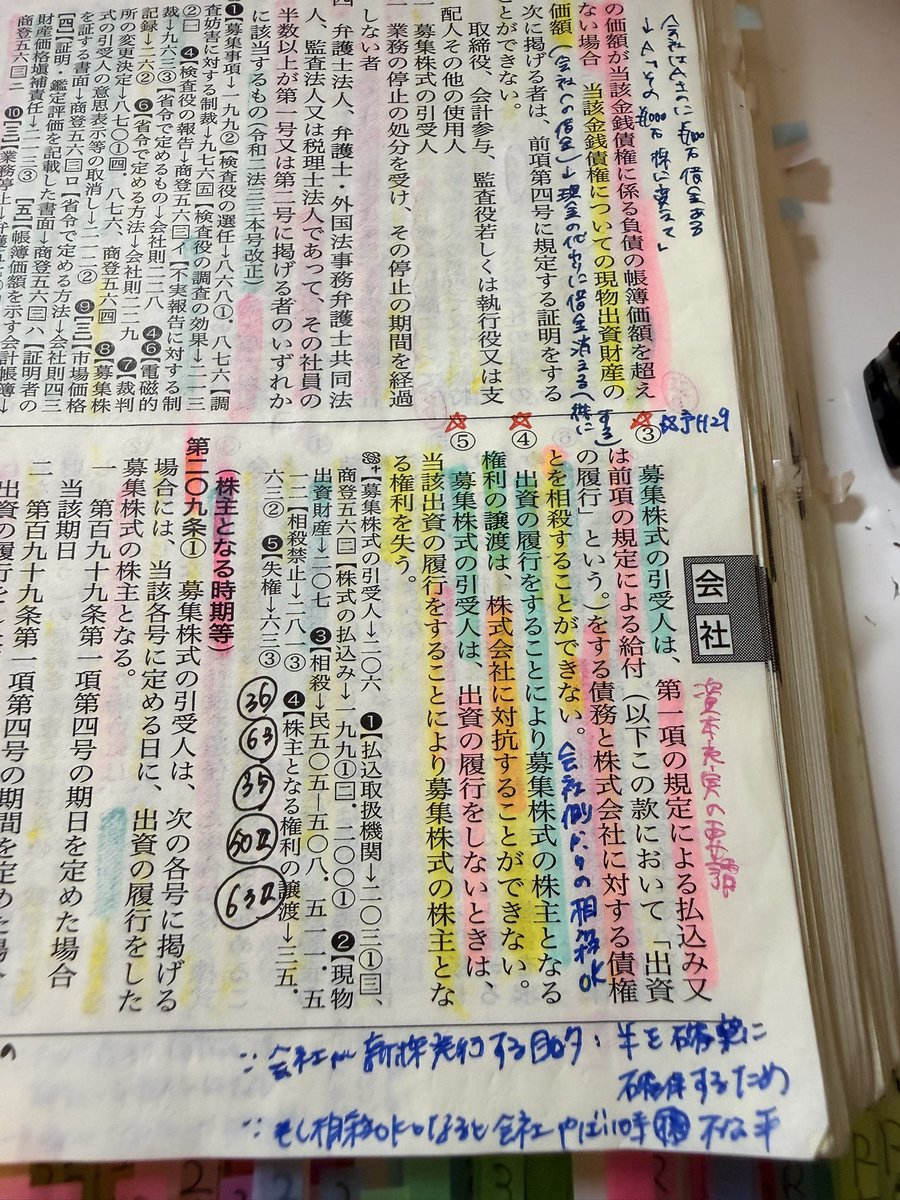 の価額が当該金銭債権に係る負債の帳簿価額を超え
ない場合　当該金銭債権についての現物出資財産の
価額
次に掲げる者は、前項第四号に規定する証明をする
ことができない。
取締役、会計参与、監査役若しくは執行役又は支
配人その他の使用人
募集株式の引受人
業務の停止の処分を受け、その停止の期間を経過
しない者
四　弁護士法人、弁護士・外国法事務弁護士共同法
人、監査法人又は税理士法人であって、その社員の
半数以上が第一号又は第二号に掲げる者のいずれか
に該当するもの（令和二法三三本号改正）
❶【募集事項→一九九②【検査役の選任→八六八①．八七六【調
査妨害に対する制裁→九七六⑤【検査役の調査の効果→二一三
②㊀　❹【検査役の報告→商登五六㊂イ【不実報告に対する制
裁→九六三③【省令で定めるもの→会社則二二八　❹❻【電磁的
記録→二六②　❻【省令で定める方法→会社則二二九　❼【裁判
所の変更決定→八七〇①四，八七六，商登五六四　❽【募集株
式の引受人の意思表示等の取消し→二一二②　❾【三】市場価格
を証する書面→商登五六㊂ロ【省令で定める方法→会社則四三
【四】証明・鑑定評価を記載した書面→商登五六㊂ハ【証明者の
財産価格塡補責任→二一三③　【五】帳簿価額を示す会計帳簿→
商登五六㊂ニ　❿【三】業務停止→弁護
会社
③　募集株式の引受人は、第一項の規定による払込み又
は前項の規定による給付（以下この款において「出資
の履行」という。）をする債務と株式会社に対する債権
とを相殺することができない。
会社側からの相殺OK
④　出資の履行をすることにより募集株式の株主となる
権利の譲渡は、株式会社に対抗することができない。
⑤　募集株式の引受人は、出資の履行をしないときは、
当該出資の履行をすることにより募集株式の株主とな
る権利を失う。
【募集株式の引受人→二〇六　❶【払込取扱機関→二〇三①㊂，
商登五六㊁【株式の払込み→一九九①㊂．二〇〇①　❷【現物
出資財産→二〇七　❸【相殺→民五〇五―五〇八，五一一．五
一二【相殺禁止→二八一③　❹【株主となる権利の譲渡→三五．
六三②　❺【失権→六三③
36
63
35
50Ⅱ
63Ⅱ
（株主となる時期等）
第二〇九条①　募集株式の引受人は、次の各号に掲げる
場合には、当該各号に定める日に、出資の履行をした
募集株式の株主となる。
一　第百九十九条第一項第四号の期日を定めた場合
当該期日
二　第百九十九条第一項第四号の期間を定めた場合
∵会社が新株発行する目的：
するため
∵もし相殺OKとなると会社やばい時